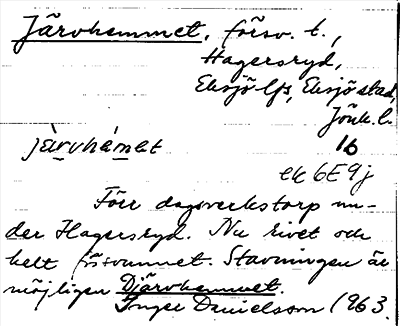 Järvhemmet, försv. t.,
Hagersryd,
Eksjö lfs, Eksjö stad,
Jönk. l.
jä̀rvhémet 16
ek 6E9j
Förr dagsverkstorp un-
der Hagersryd. Nu rivet och
helt försvunnet. Stavningen är
möjligen Djärvhemmet.
Inger Danielsson 1963.